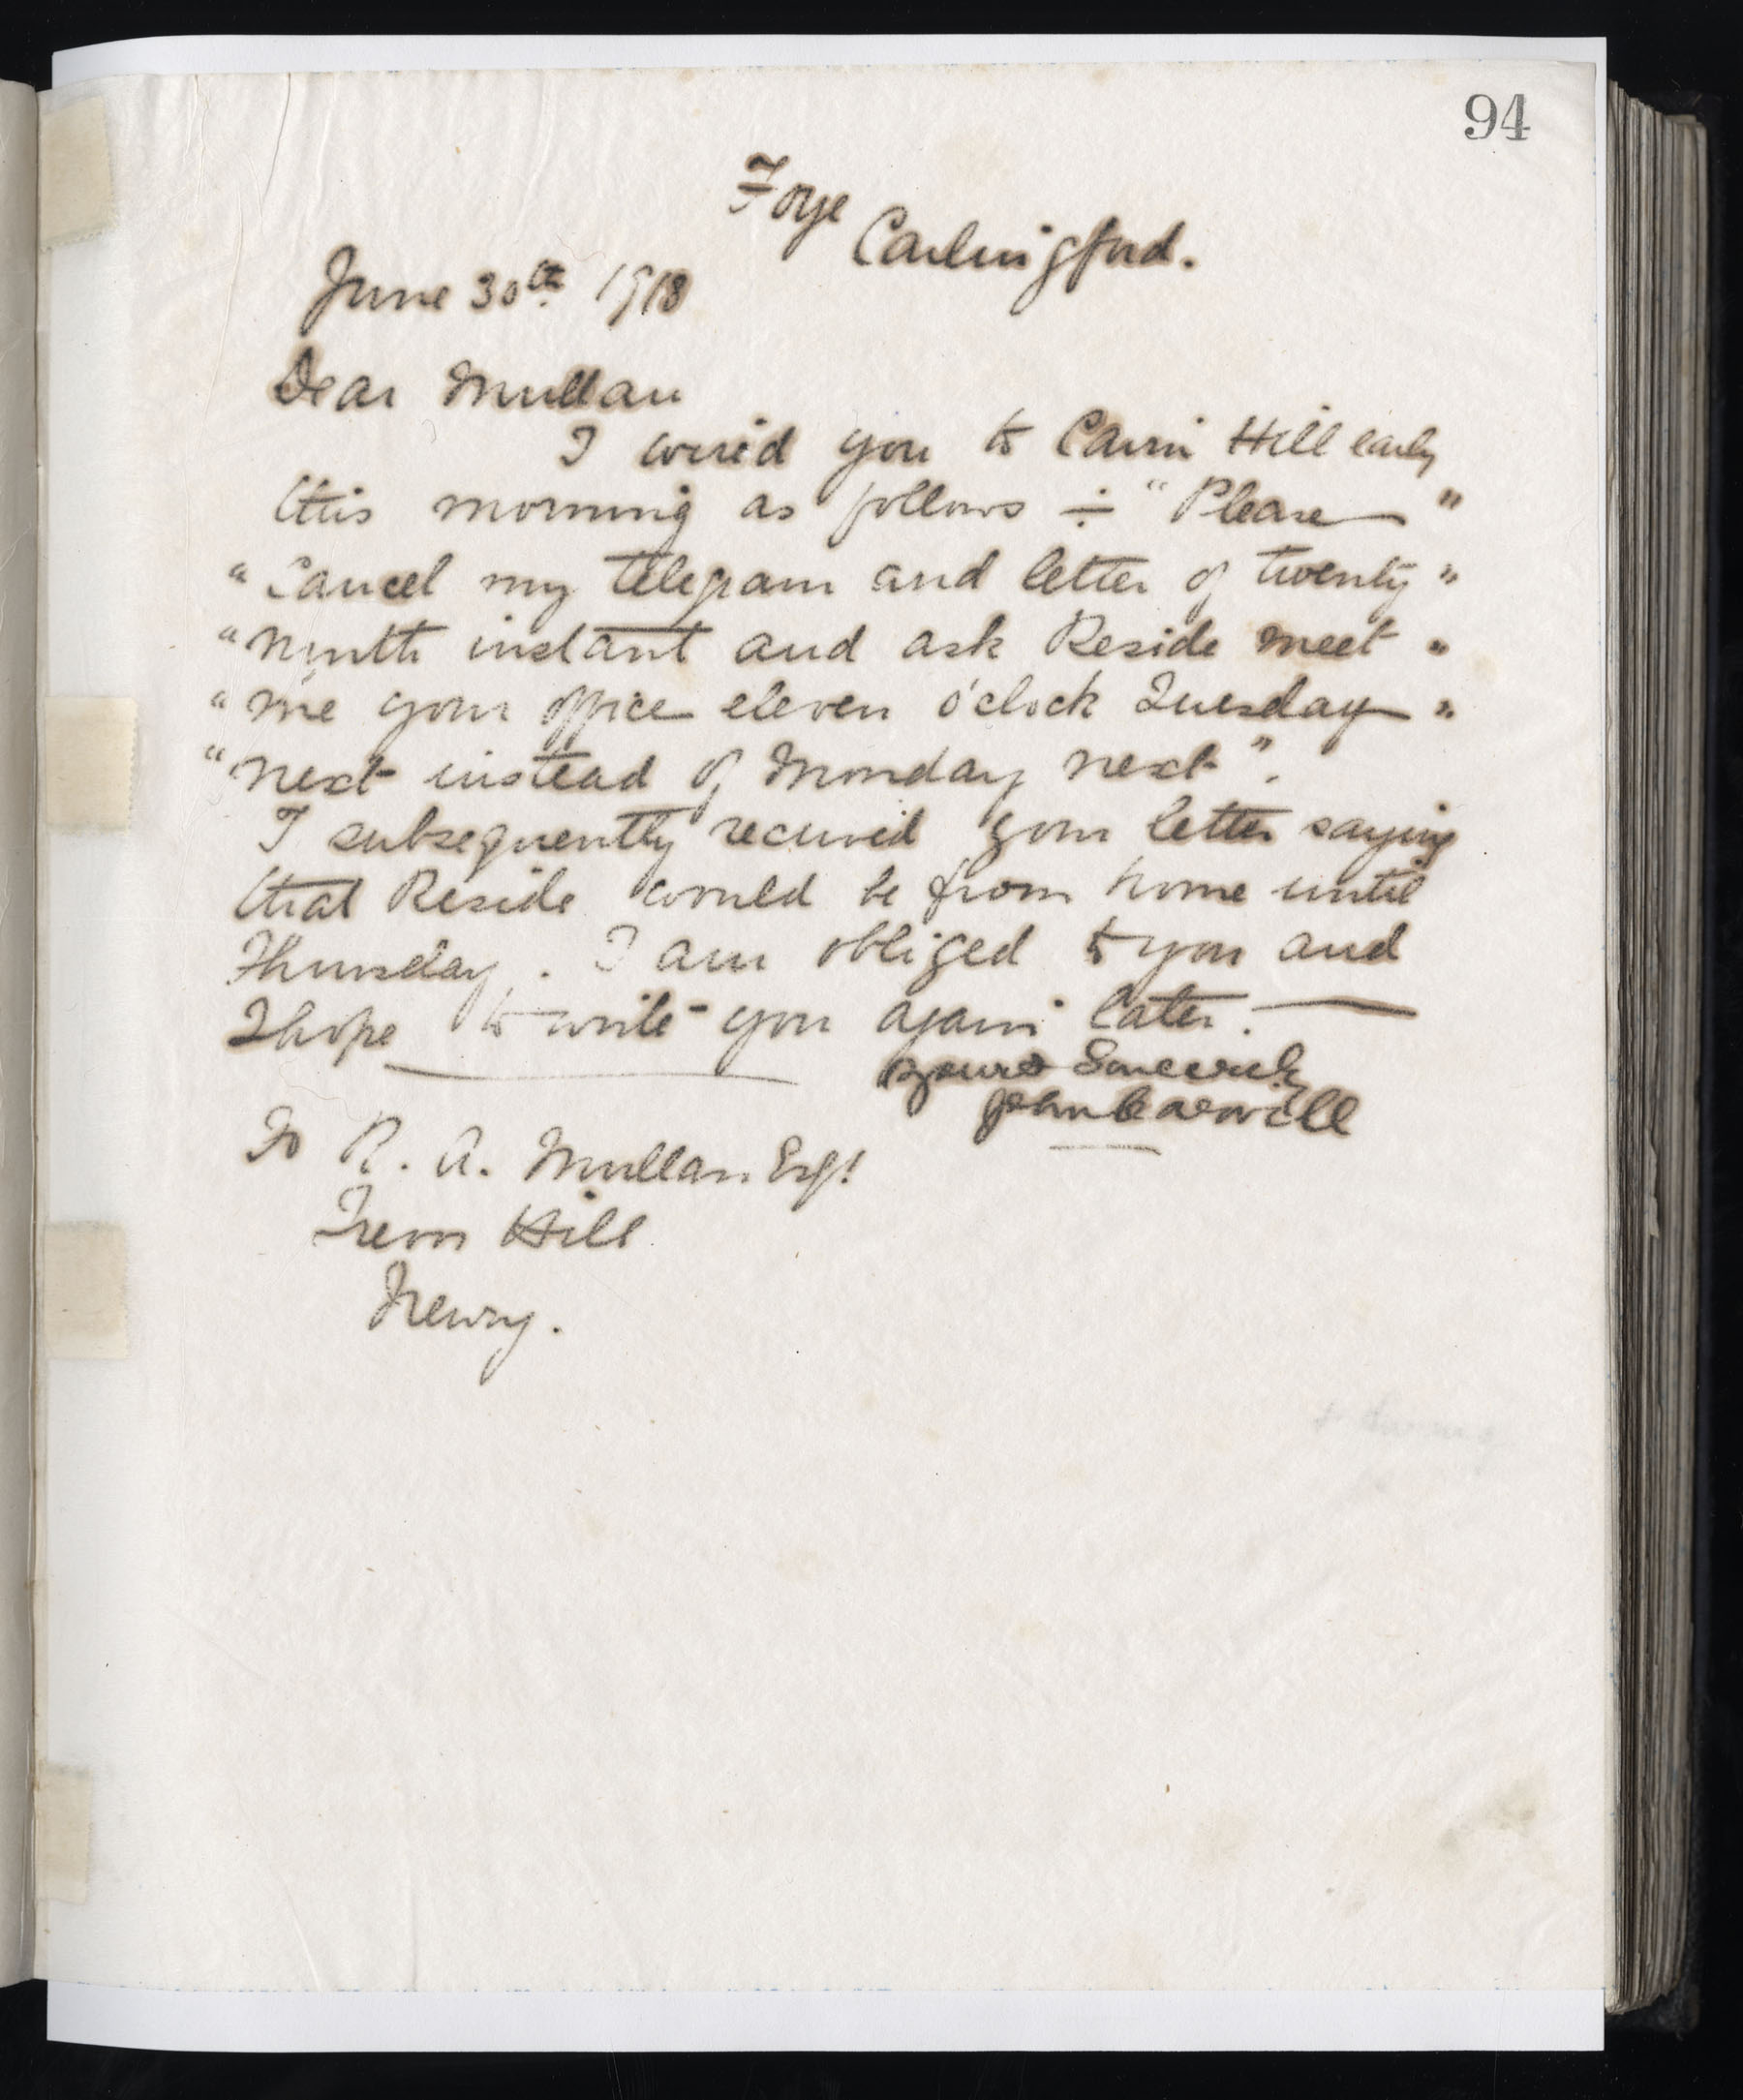 94
Foye
Carlingford.
June 30th 1918
Dear Mullan
I wired you to Cairn Hill early
this morning as follows ÷ "Please "
"Cancel my telegram and letter of twenty "
"ninth instant and ask Reside meet "
"me your office eleven o'clock Tuesday "
"next instead of Monday next".
I subsequently received your letter saying
that Reside would be from home until
Thursday. I am obliged to you and
I hope to write you again later.
Yours Sincerely
John Carvill
To R. A. Mullan Esq!
Trevor Hill
Newry.